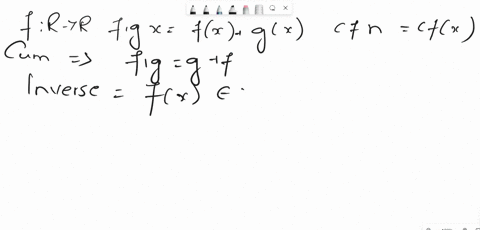 f : R→R f+g x = f(x)+ g(x) cfn = cf(x)
Cum => f+g = g+f
Inverse = f(x) ∈ .